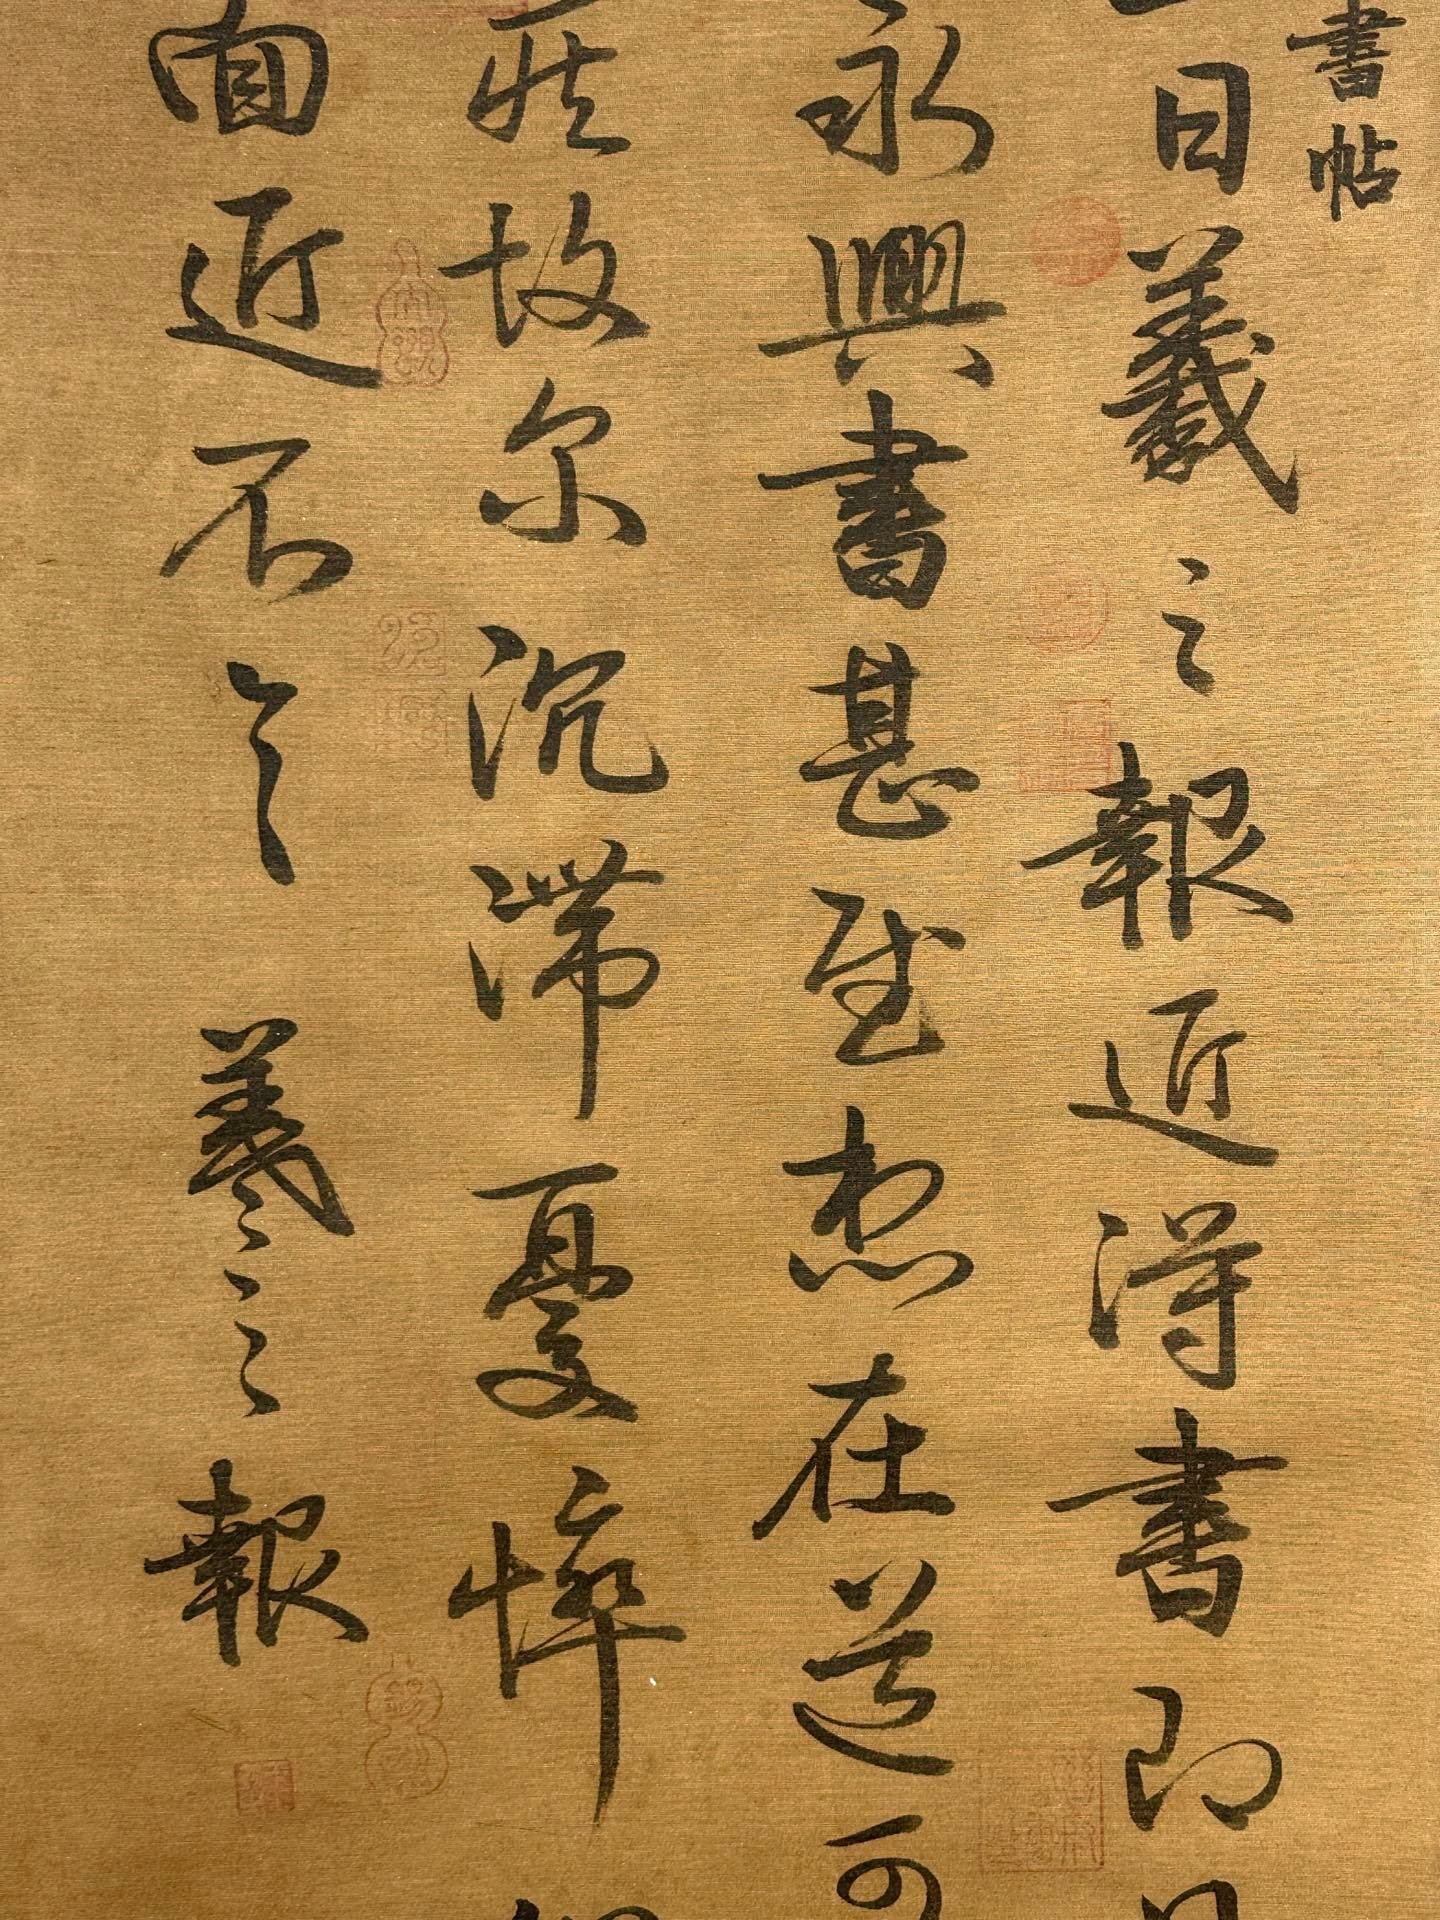 書帖
日羲之報近得書即日
永興書甚至愁在道可
疾故尔沉滯憂悴
面近不具羲之報